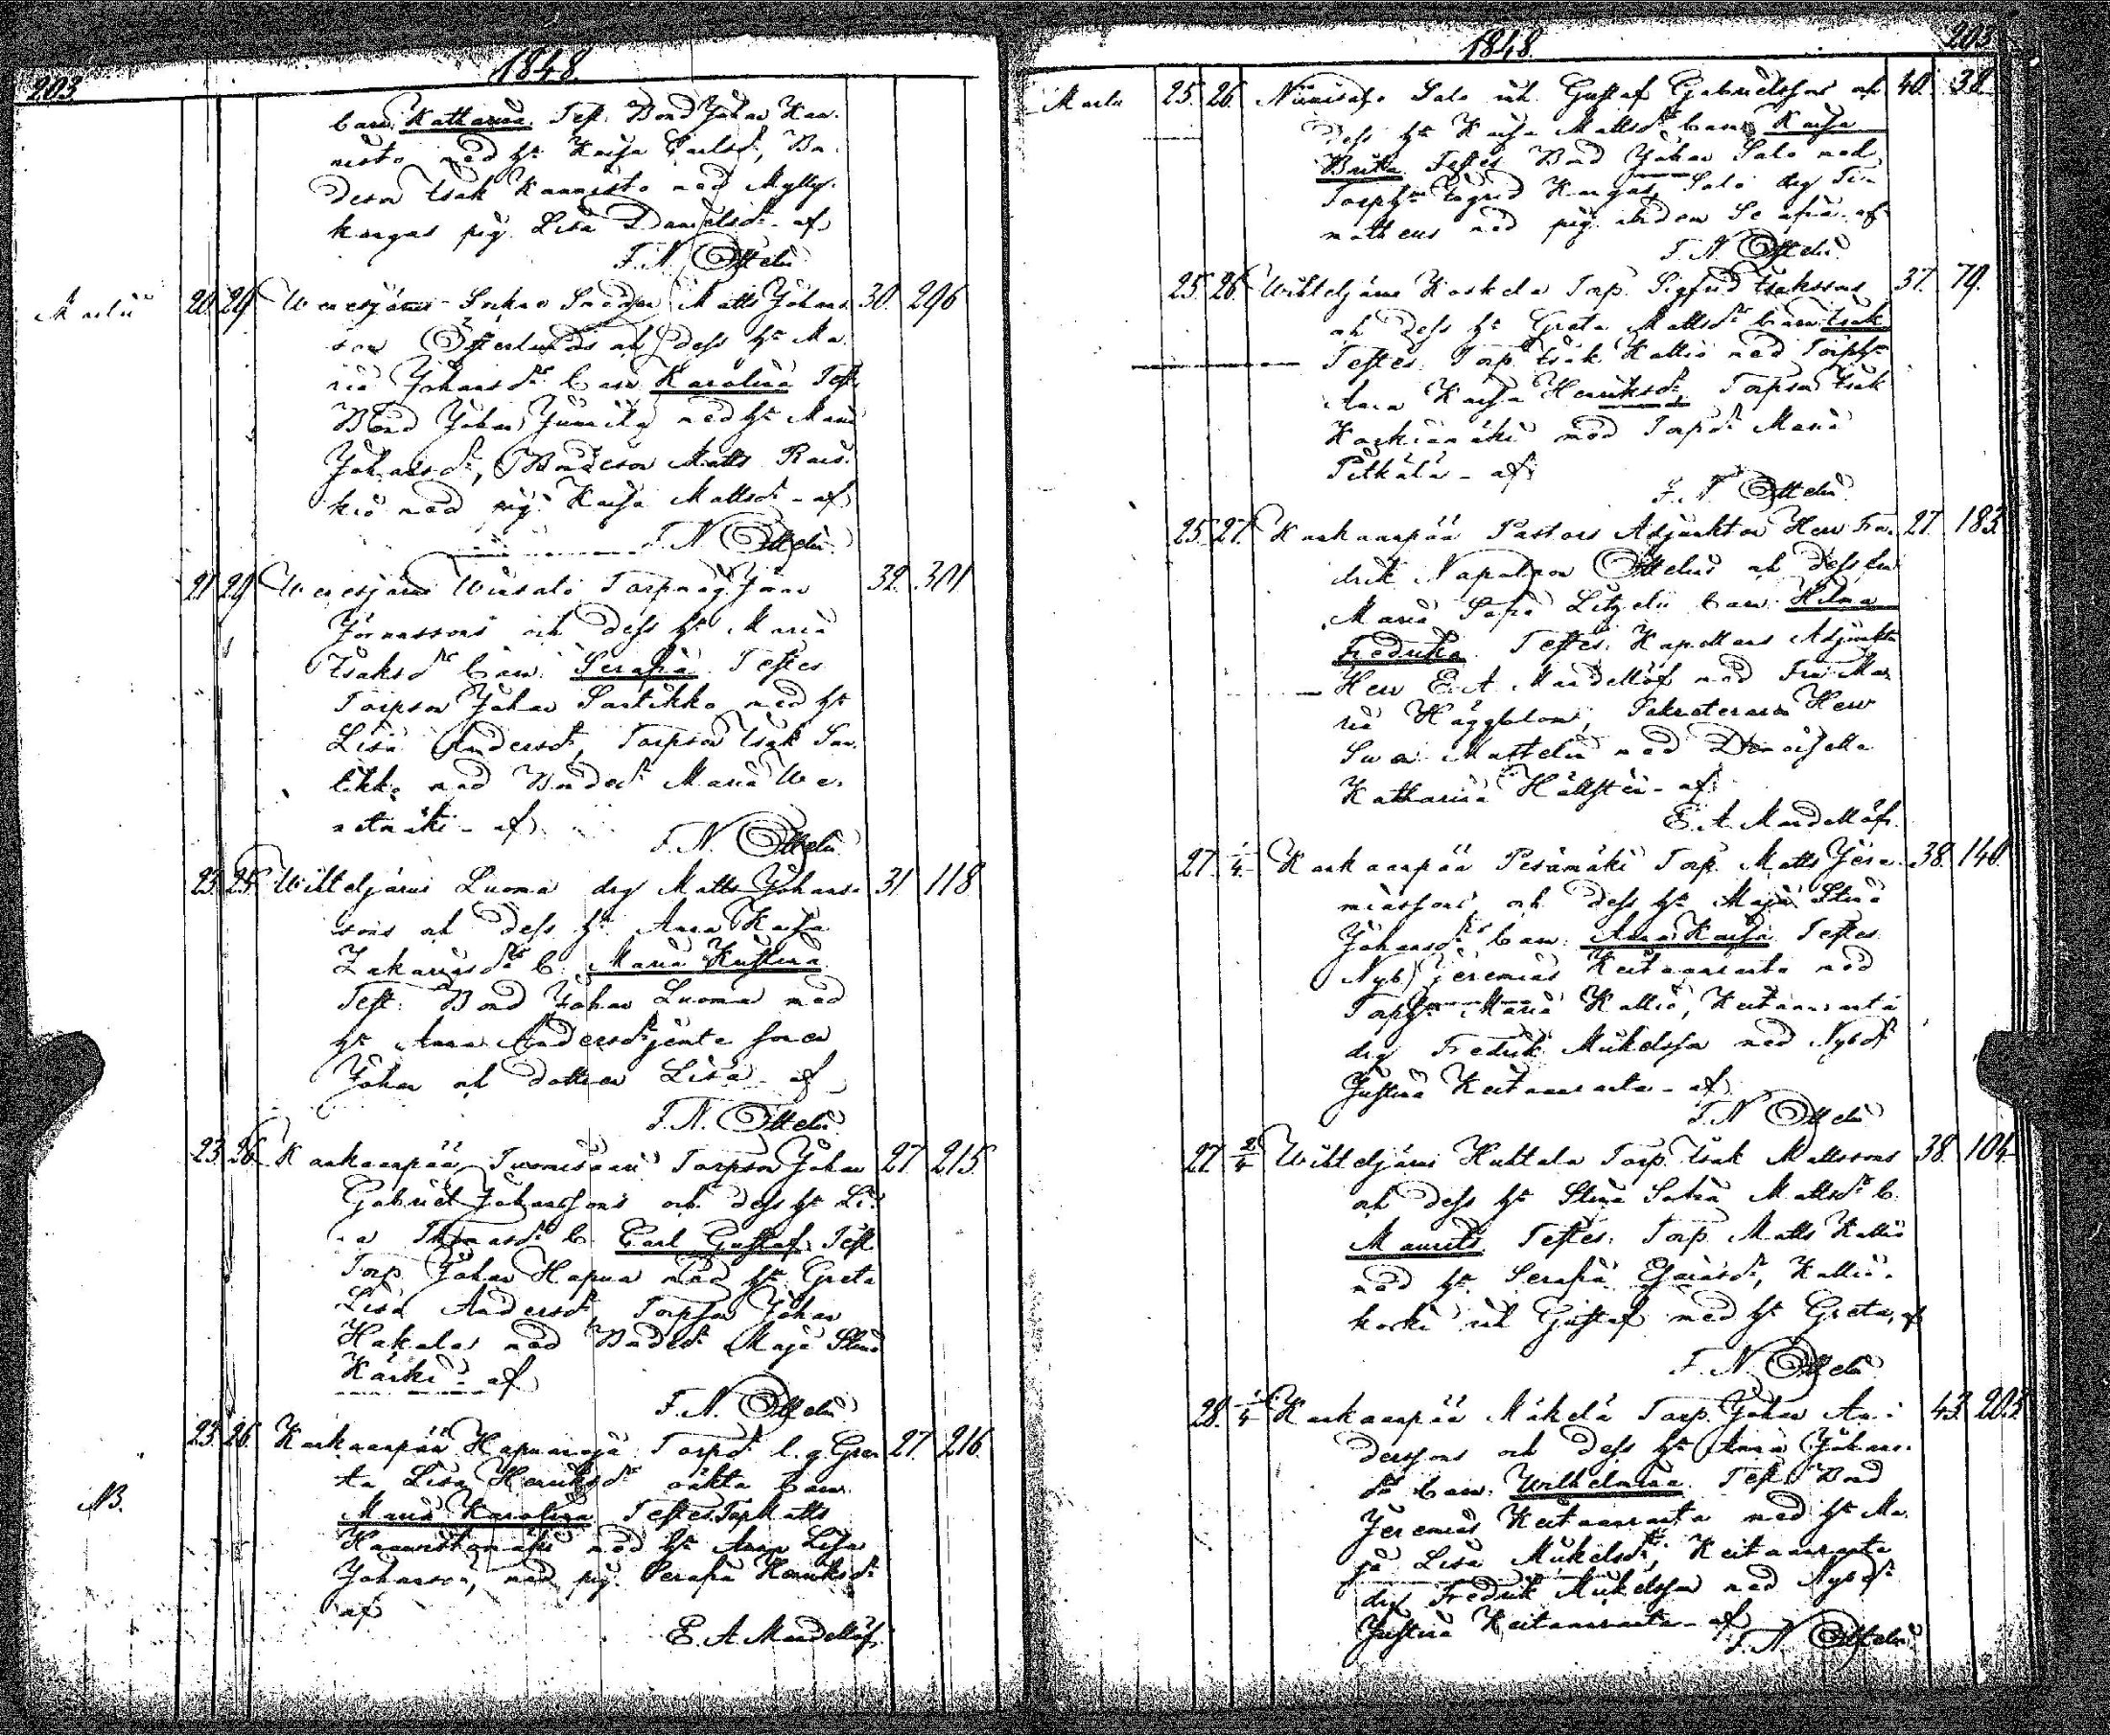 203.
1848.
barn Katharina Test. Bond Johan Kan-
nisto med h:u Kaisa Carlsd:r, Bo-
deson Isak Kannisto med Mylly-
kangas pig. Lisa Danielsd:r af
F. N. Ottelin
Martii 20. 29. Wenesjärvi Matts Johans- 30. 296
son Österlunds och dess h:u Ma-
ria Johansd:rs barn Karolina Test.
Bond Johan Junnila med h:u Maria
Johansd:r, Bondeson Matts Rais-
kio med pig. Kaisa Mattsd:r - af
F. N. Ottelin
21 29 Wenesjärvi Torpmåg Jonas 32. 301
Jonassons och dess h:u Maria
Isaksd:rs barn Serafia Testes
Torpson Johan Santikko med h:u
Lisa Andersd:r, Torpson Isak San-
tikko med Bonded:r Maria We-
netmäki - af
F. N. Ottelin
23. 25. Wihteljärvi Luoma drg Matts Johans- 31 118
sons och dess h:u Anna Kaisa
Zakariasd:rs b. Maria Kustava
Test. Bond Johan Luoma med
h:u Anna Andersd:r jemte sonen
Johan och dottren Lisa - af
F. N. Ottelin
23. 26. Kankaanpää Tuomisaari Torpson Johan 27. 215.
Gabriel Johanssons och dess h:u Li-
sa Thomasd:r b. Carl Gustaf. Test.
Torp. Johan Hapua med h:u Greta
Lisa Andersd:r, Torpson Johan
Hakala med Bonded:r Maja Stina
Karki - af
F. N. Ottelin
NB. 23. 26. Kankaanpää Hapuanoja Torpd:r l. g. Gre- 27. 216.
ta Lisa Henriksd:rs oäkta barn
Maria Karolina Testes. Torp Matts
Kannistonmäki med h:u Anna Lisa
Johansd:r, med pig. Serafia Henriksd:r
af
E. A. Mandellöf.
1848.
203.
Martii 25. 26. Niinisalo Salo inh. Gustaf Gabrielssons och 40. 32.
dess h:u Kaisa Mattsd:rs barn Kaisa
Brita Testes Bond Johan Salo med
Torph:u Ingrid Kangas, Salo drg Ti-
motheus med pig. Serafia af
F. N. Ottelin
25. 26. Wihteljärvi Koskela Torp. Sigfrid Isakssons 37. 79.
och dess h:u Greta Mattsd:rs barn Isak
Testes. Torp. Isak Kallio med Torph:u
Anna Kaisa Henriksd:r, Torpson Isak
Koskismäki med Torpd:r Maria
Pitkälä - af
F. N. Ottelin
25. 27. Kankaanpää Pastors Adjunkten Herr Fre- 27. 183.
drik Napoleon Ottelins och dess fru
Maria Sofia Litzelii barn Hilma
Fredrika. Testes. Kapellans Adjunkten
Herr E. A. Mandellöf med Fru Ma-
ria Häggblom, Sekreteraren Herr
Sven Mattelin med Demoiselle
Katharina Hällsten - af
E. A. Mandellöf.
27. 1/4. Kankaanpää Pesämäki Torp. Matts Jere- 38. 140.
miassons och dess h:u Maja Stina
Johansd:rs barn Anna Kaisa Testes
Nyb. Jeremias Keitaanranta med
Torph:u Maria Kallio, Keitaanranta
drg Fredrik Mikelsson med Nybd:r
Justina Keitaanranta - af
F. N. Ottelin
27. 2/4 Wihteljärvi Huhtala Torp. Isak Mattssons 38. 104.
och dess h:u Stina Sofia Mattsd:rs b.
Maurits. Testes. Torp. Matts Kallio
med h:u Serafia Esaiasd:r, Kallio-
koski inh Gustaf med h:u Greta, af
F. N. Ottelin
28. 1/4 Kankaanpää Mäkelä Torp. Johan An- 43. 205
derssons och dess h:u Anna Johans-
d:rs barn. Wilhelmina Test. Bond
Jeremias Keitaanranta med h:u Ma-
ja Lisa Mikelsd:r, Keitaanranta
drg Fredrik Mikelsson med Nybd:r
Justina Keitaanranta - af
F. N. Ottelin